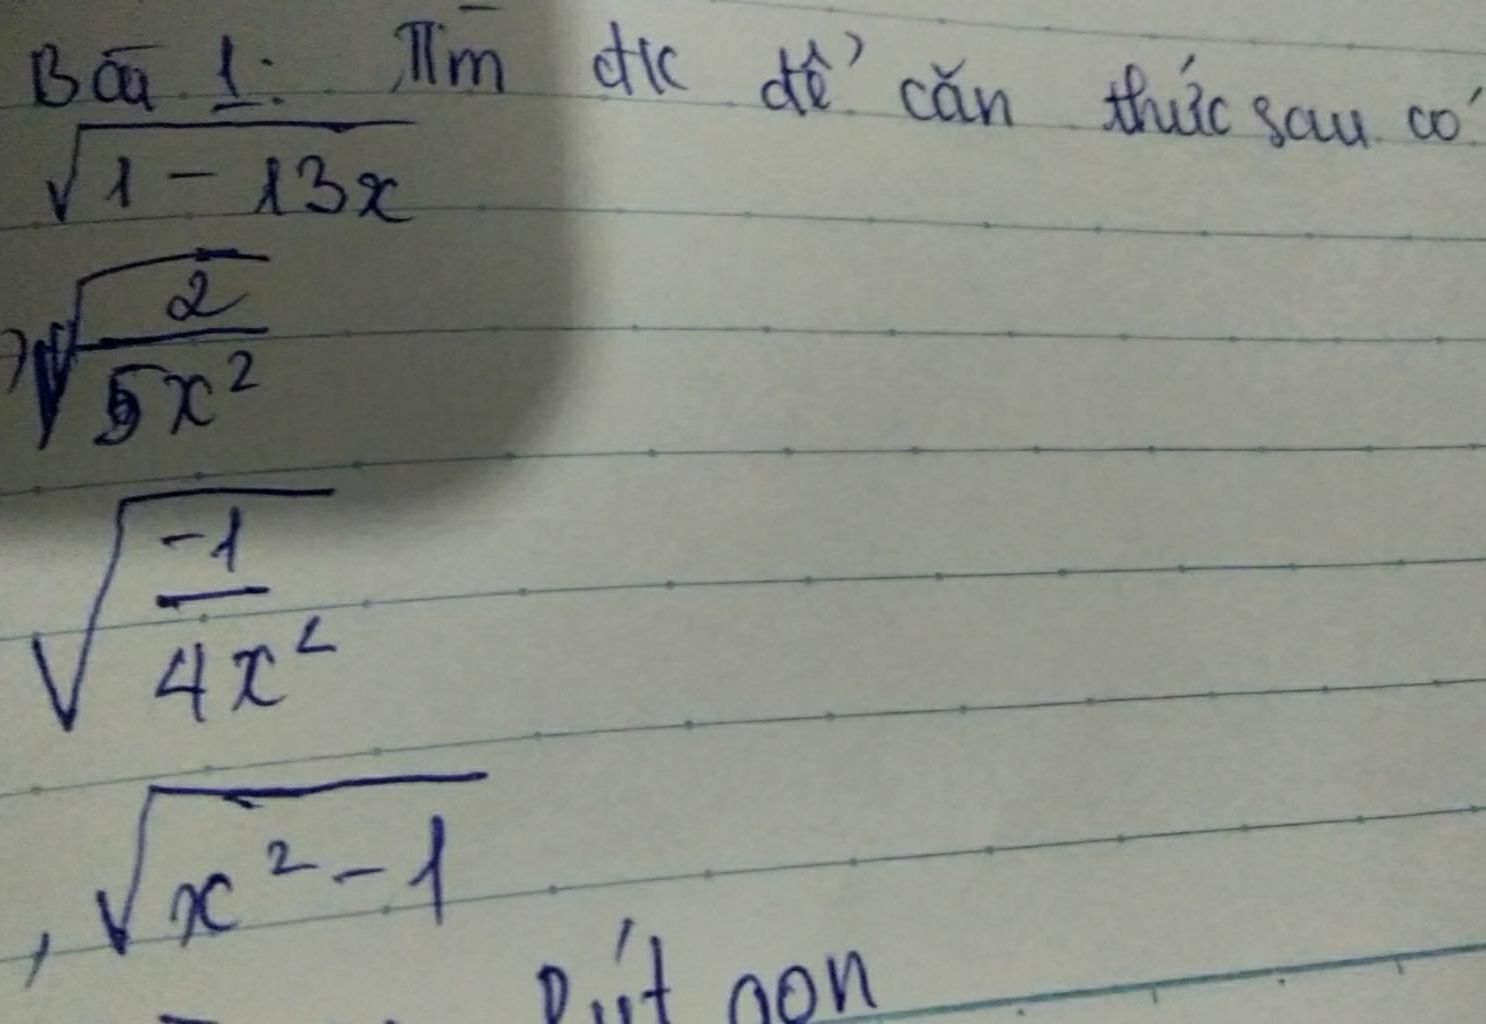 Bài 1: Tìm đk để căn thức sau có
√(1 - 13x)
) √(2/(5x²))
√(-1/(4x²))
, √(x² - 1)
Rút gọn